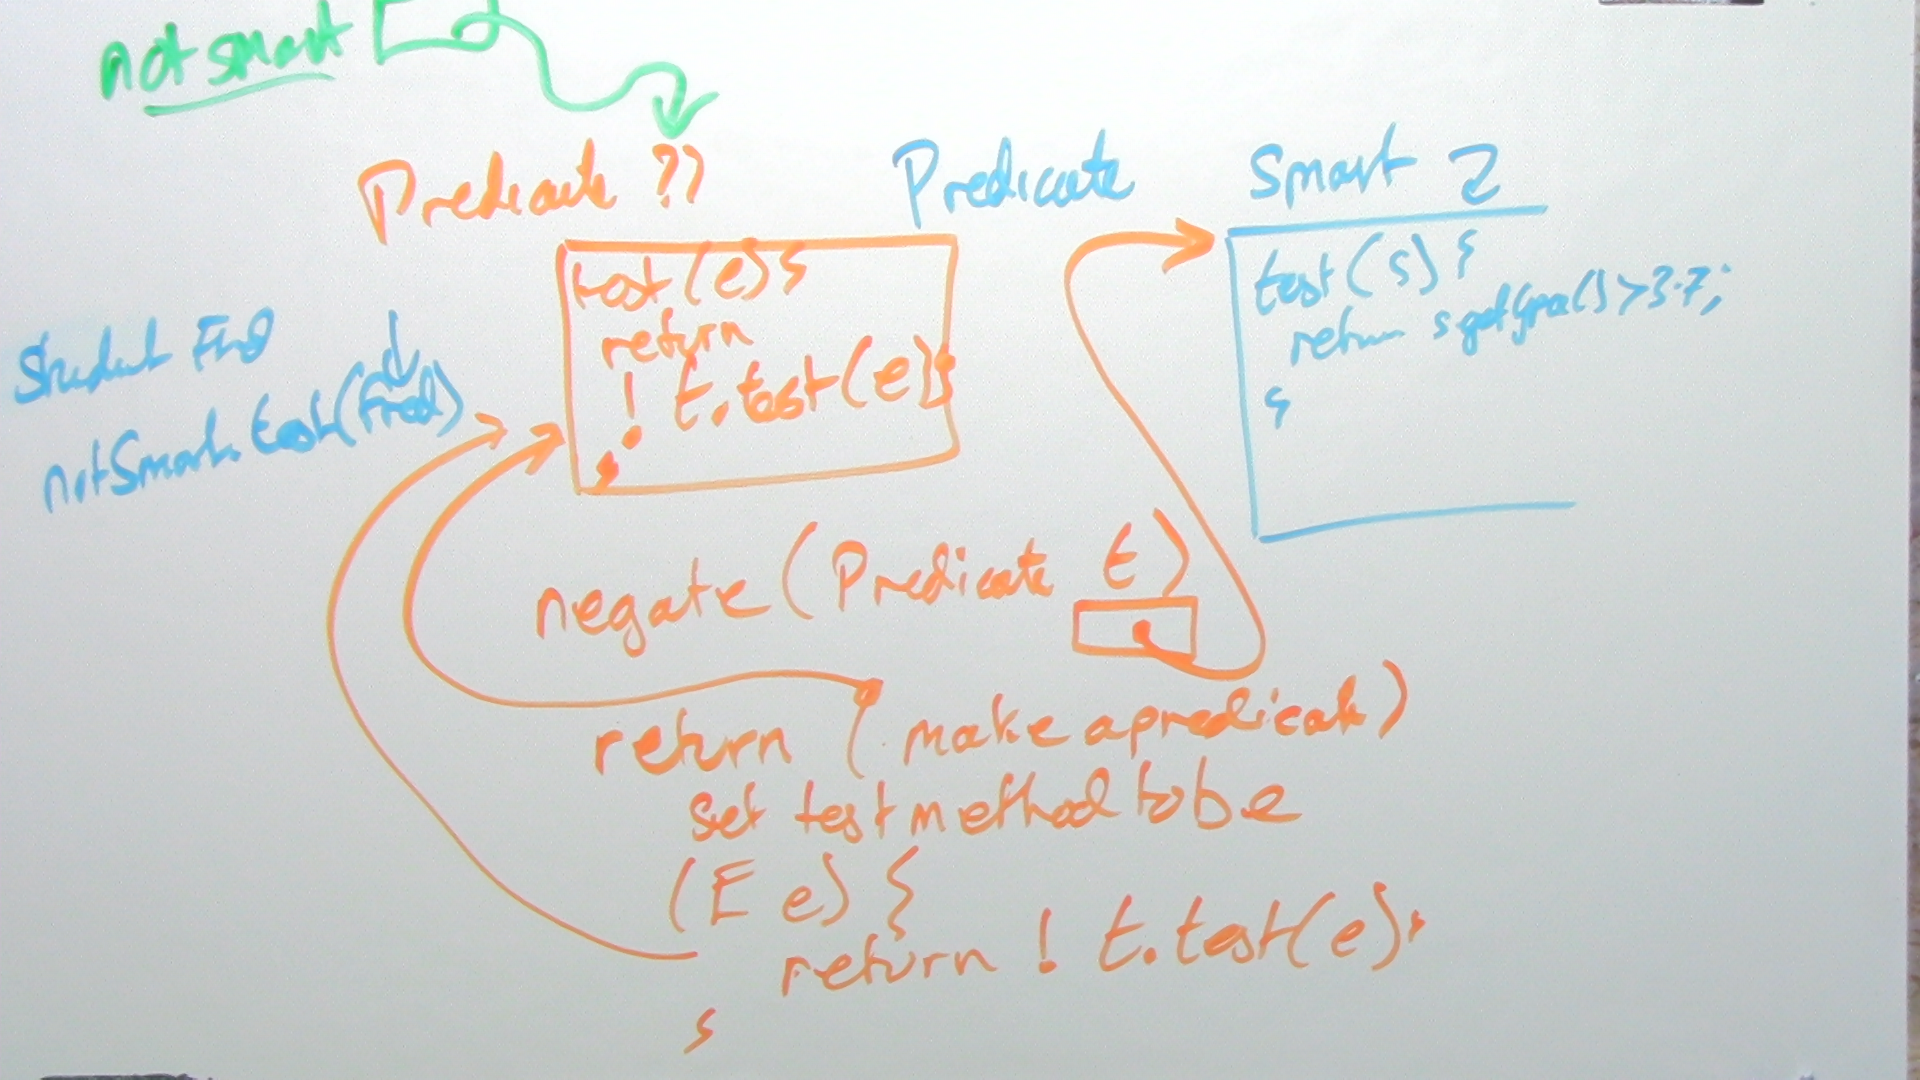 not smart
Predicate ??
Predicate Smart 2
test(e){
return
! t.test(e)}
test(s){
return s.getGpa()>3.7;
}
Student
notSmart.test(Fred)
negate(Predicate t)
return (make a predicate)
set test method to be
(E e) {
return ! t.test(e);
}